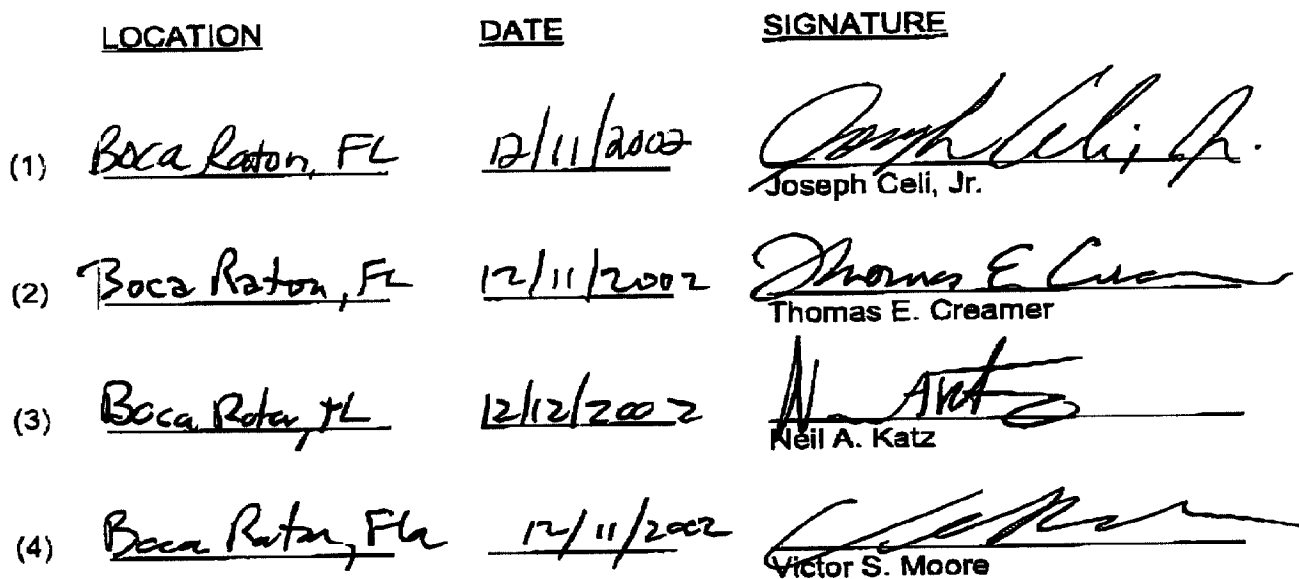 LOCATION DATE SIGNATURE
(1) Boca Raton, FL 12/11/2002 Joseph Celi, Jr.
Joseph Celi, Jr.
(2) Boca Raton, FL 12/11/2002 Thomas E Creamer
Thomas E. Creamer
(3) Boca Raton, FL 12/12/2002
Neil A. Katz
(4) Boca Raton, Fla 12/11/2002
Victor S. Moore